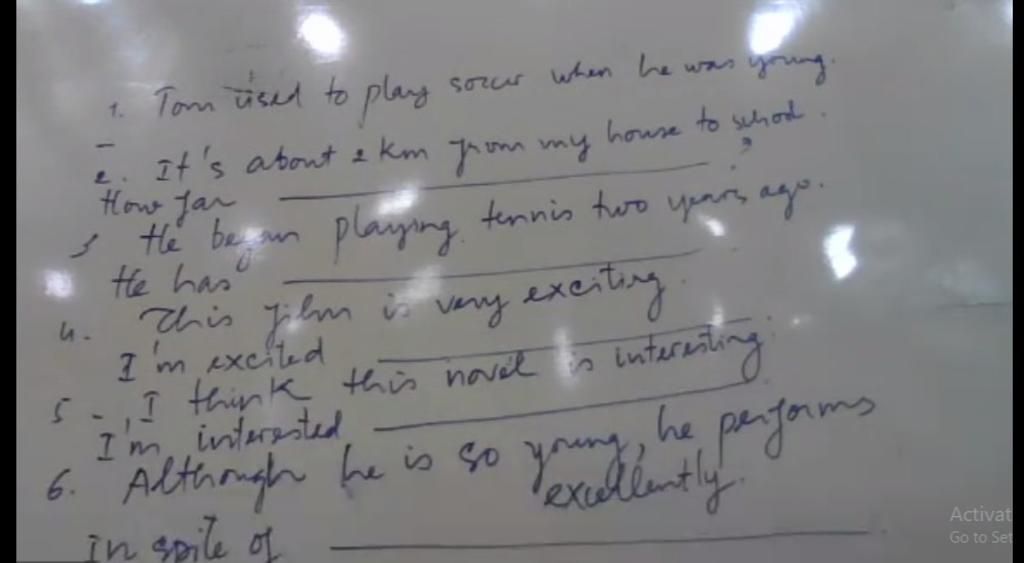 1. Tom used to play soccer when he was young.
-
2. It's about 2 km from my house to school.
How far ____________ ?
3 He began playing tennis two years ago.
He has ____________
4. This film is very exciting.
I'm excited ____________
5 - I think this novel is interesting.
I'm interested ____________
6. Although he is so young, he performs
excellently.
In spite of ____________
Activat
Go to Set